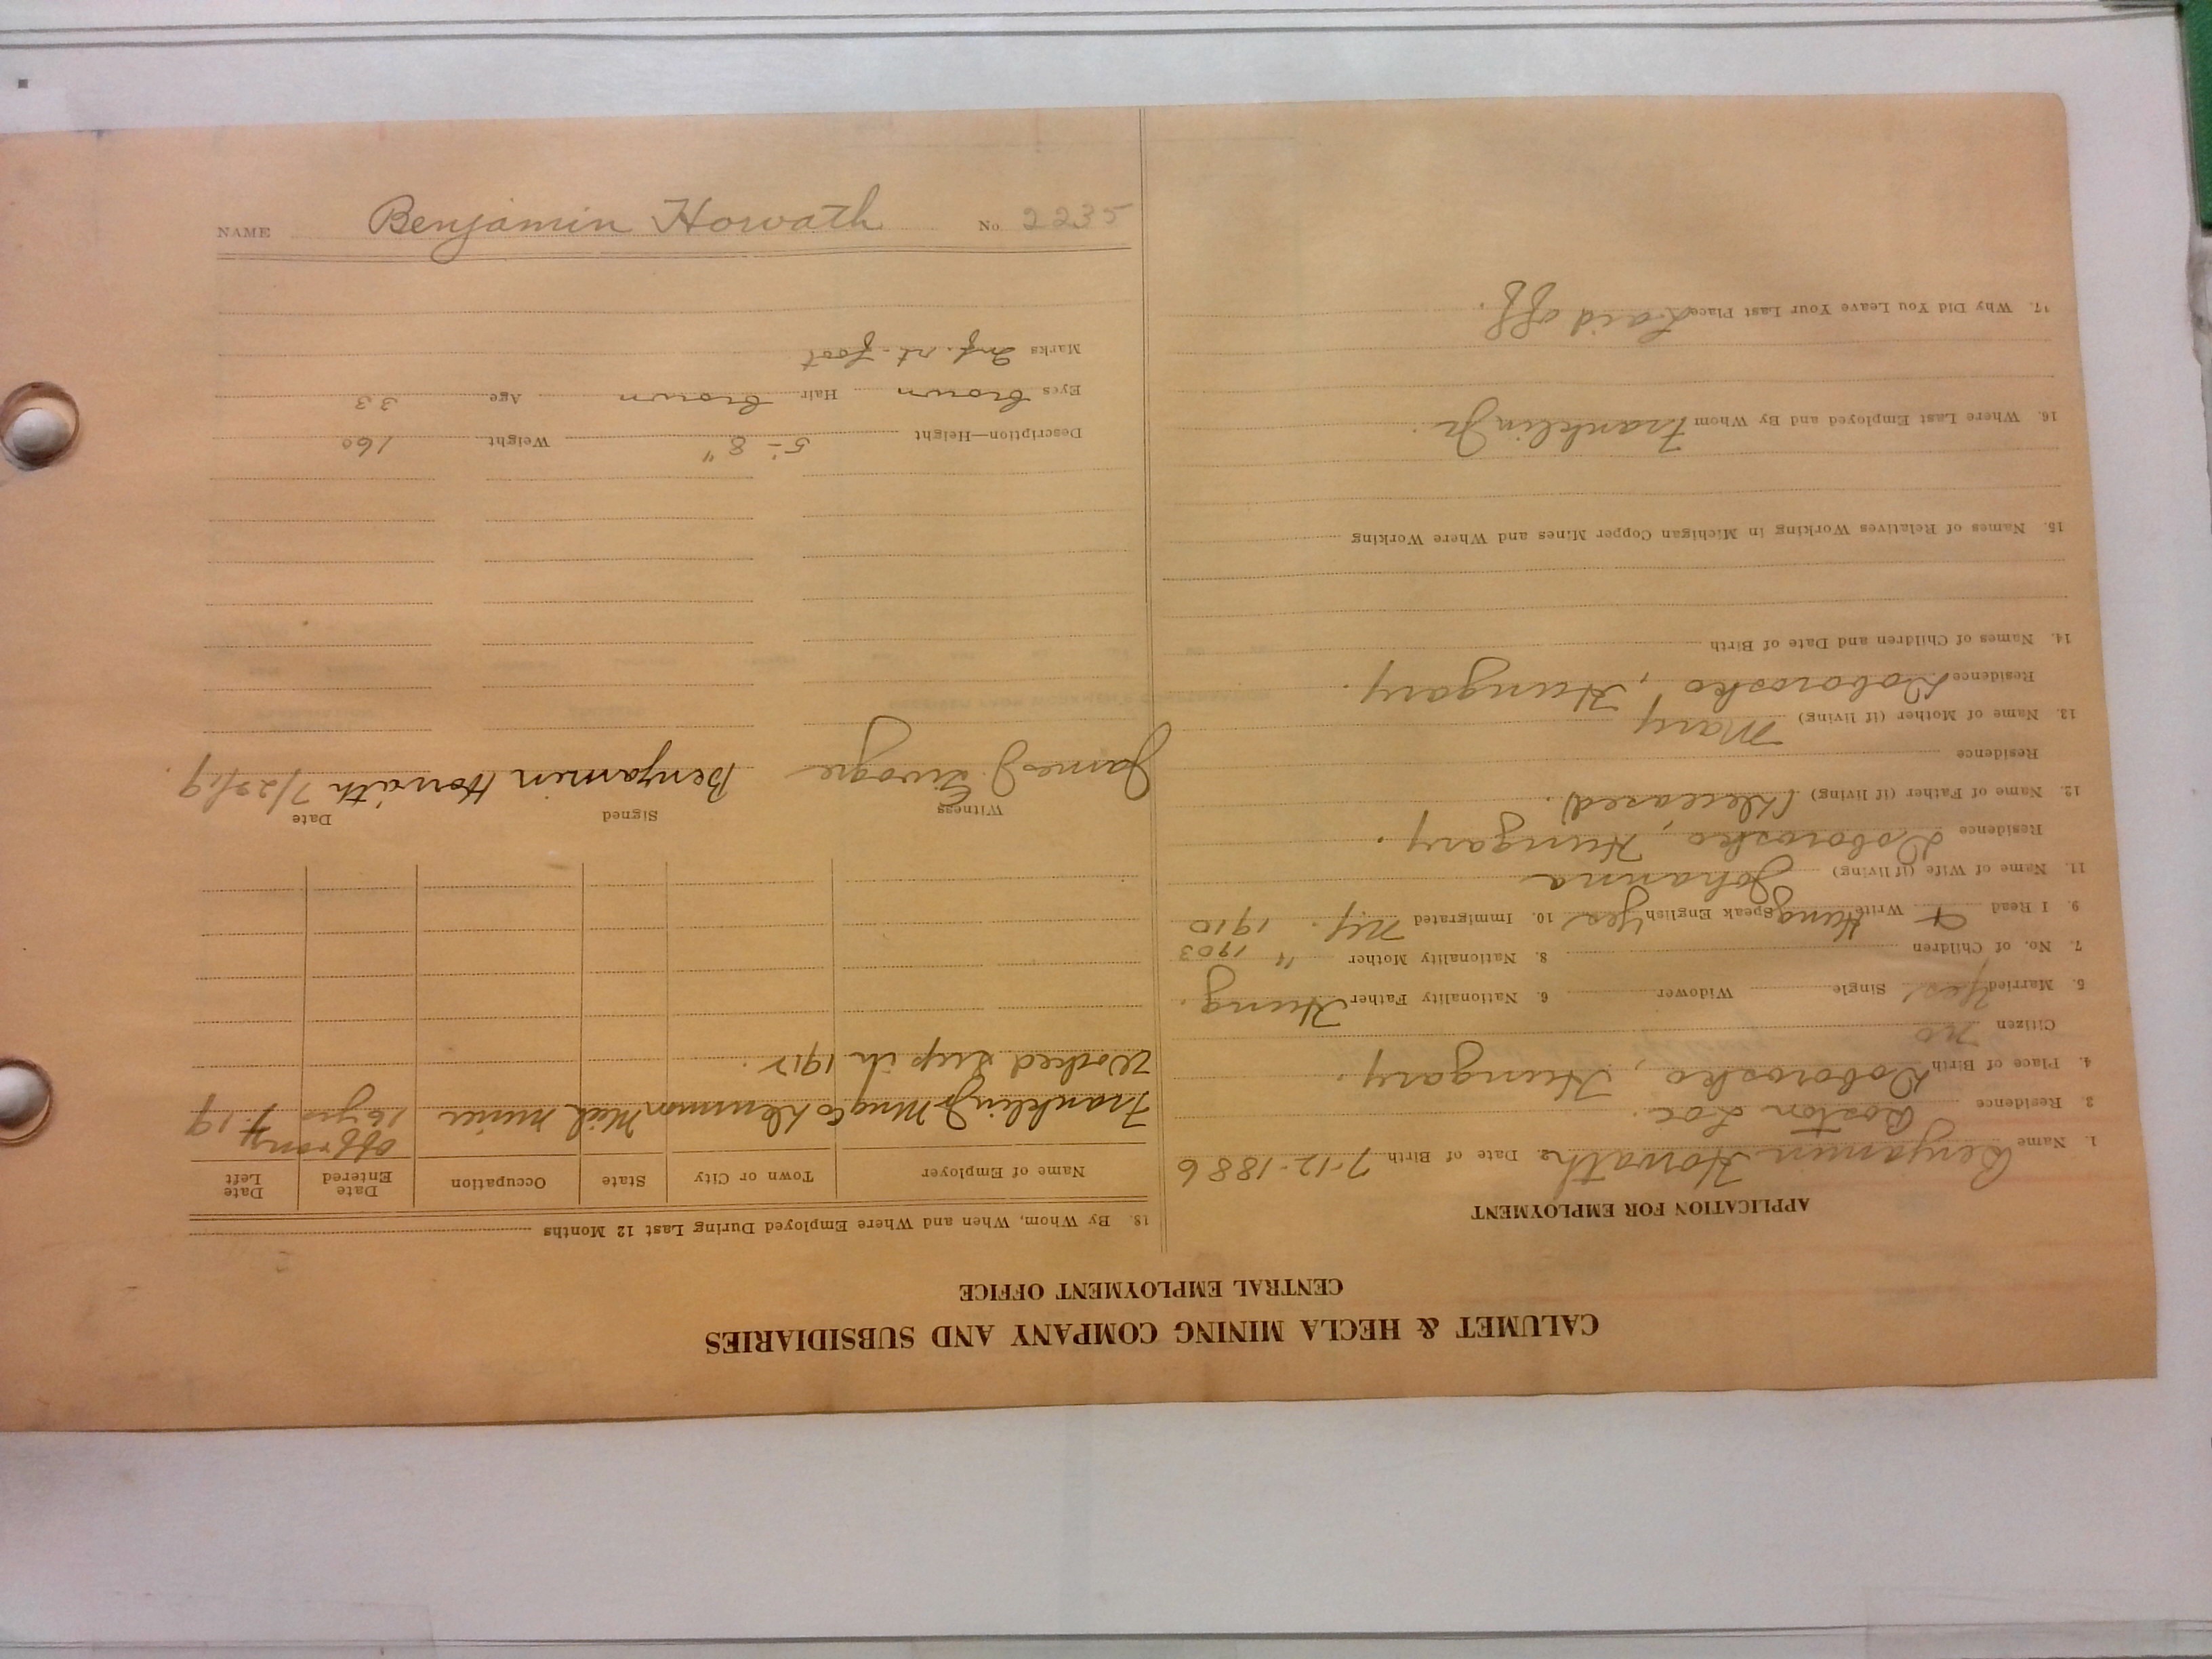 CALUMET & HECLA MINING COMPANY AND SUBSIDIARIES
CENTRAL EMPLOYMENT OFFICE
APPLICATION FOR EMPLOYMENT
1. Name Benjamin Horvath 2. Date of Birth 7-12-1886
3. Residence Boston Loc.
4. Place of Birth Doborosko, Hungary.
Citizen no
5. Married Yes Single Widower 6. Nationality Father Hung.
7. No. of Children 8. Nationality Mother " 1903
9. I Read & Write Hung Speak English Yes 10. Immigrated N.Y. 1910
11. Name of Wife (if living) Johanna
Residence Doborosko, Hungary.
12. Name of Father (if living) (Deceased).
Residence
13. Name of Mother (if living) Mary
Residence Doborosko, Hungary.
14. Names of Children and Date of Birth
15. Names of Relatives Working in Michigan Copper Mines and Where Working
16. Where Last Employed and By Whom Franklin Jr.
17. Why Did You Leave Your Last Place Laid off.
18. By Whom, When and Where Employed During Last 12 Months
Name of Employer Town or City State Occupation Date Entered Date Left
off & on
Franklin Jr Mng Co Demmon Mich miner 16 yrs 7-19
Worked Sup in 1912.
Witness Signed Date
James J. Benjamin Horváth 7/22/19.
Description—Height 5-8" Weight 160
Eyes brown Hair brown Age 33
Marks Inj. rt. foot
NAME Benjamin Horvath No. 2235